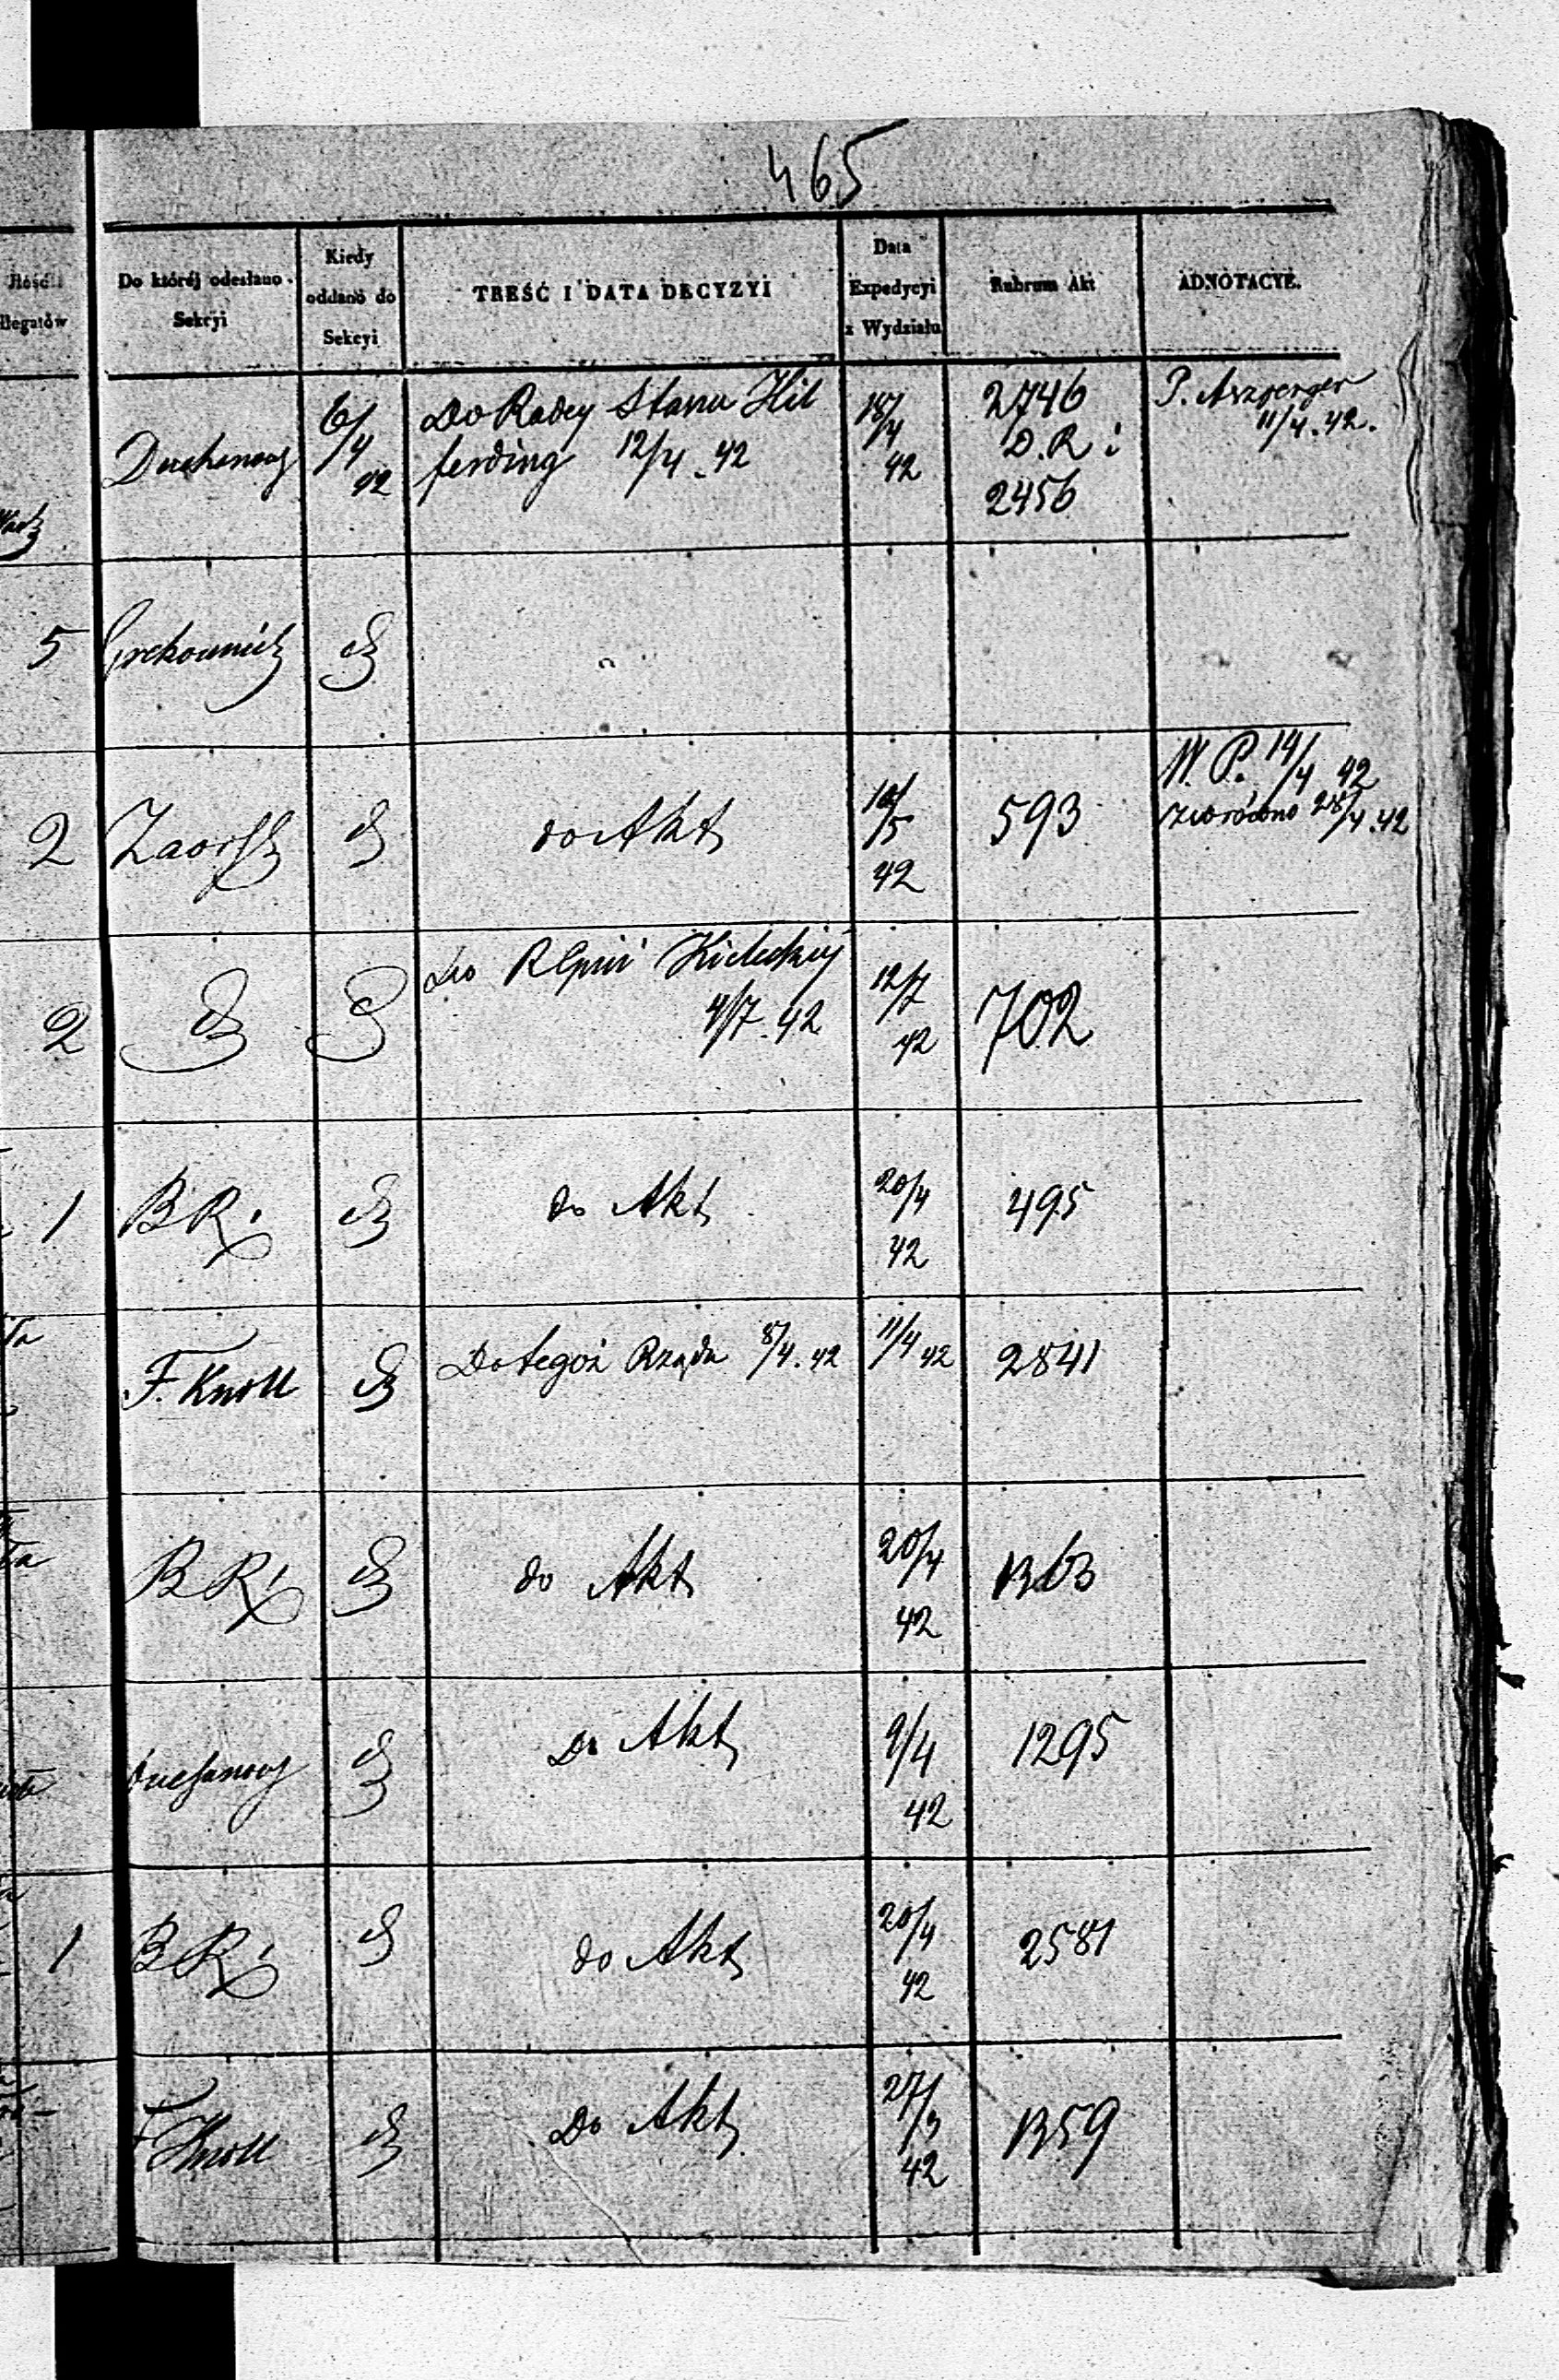 465
Ilość
llegatów
Do której odesłano Sekcyi
Kiedy oddano do Sekcyi
TREŚĆ I DATA DECYZYI
Data Expedycyi z Wydziału
Rubrum Akt
ADNOTACYE.
6/4 42
Do Radcy Stanu Hil
ferding 12/4. 42
18/4 42
2746
D. R i
2456
P. Aszperger
11/4. 42.
5
2
do Akt
10/5 42
593
W. P. 14/4 42
zwrócono 28/4. 42
2
do RGŋii Kieleckiej
4/7. 42
12/7 42
702
1 BR.
do Akt
20/4 42
495
F. Knoll
Do tegoż Rządu 8/4. 42
11/4 42
2841
BR.
do Akt
20/4 42
1363
Do Akt
9/4 42
1295
1 BR.
do Akt
20/4 42
2581
F Knoll
Do Akt
27/3 42
1359